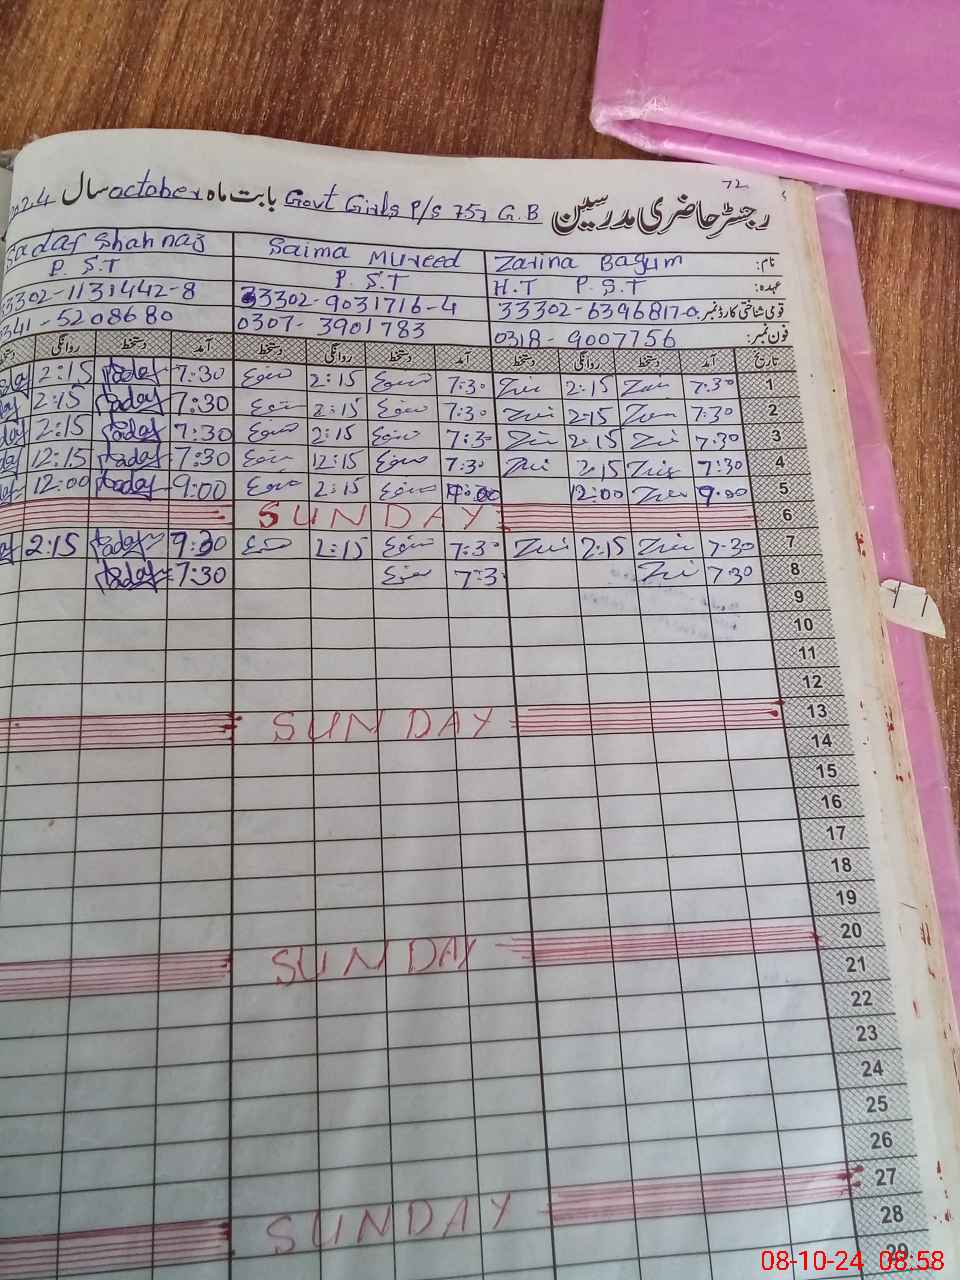 72
رجسٹر حاضری مدرسین Govt Girls P/S 757 G.B بابت ماہ october سال
نام: Zarina Bagum Saima Mureed Sadaf Shahnaz
عہدہ: H.T P.S.T P.S.T P.S.T
قومی شناختی کارڈ نمبر: 33302-6396817-0 33302-9031716-4 33302-1131442-8
فون نمبر: 0318-9007756 0307-3901783 0341-5208680
تاریخ آمد دستخط روانگی دستخط آمد دستخط روانگی دستخط آمد دستخط روانگی
1 7:30 2:15 7:30 2:15 7:30 Sadaf 2:15
2 7:30 2:15 7:30 2:15 7:30 Sadaf 2:15
3 7:30 2:15 7:30 2:15 7:30 Sadaf 2:15
4 7:30 2:15 7:30 12:15 7:30 Sadaf 12:15
5 9:00 12:00 2:15 9:00 Sadaf 12:00
6 SUNDAY
7 7:30 2:15 7:30 2:15 9:30 Sadaf 2:15
8 7:30 7:3 7:30 Sadaf
9
10
11
12
13 SUNDAY
14
15
16
17
18
19
20 SUNDAY
21
22
23
24
25
26
27 SUNDAY
28
29
08-10-24 08:58